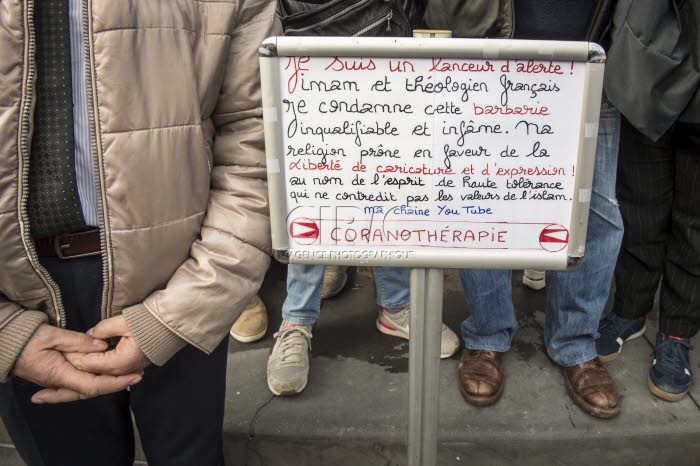 Je suis un lanceur d'alerte !
imam et théologien français
Je condamne cette barbarie
inqualifiable et infâme. Ma
religion prône en faveur de la
Liberté de caricature et d'expression !
au nom de l'esprit de haute tolérance
qui ne contredit pas les valeurs de l'islam.
ma chaine YouTube
CORANOTHÉRAPIE
AGENCE PHOTOGRAPHIQUE